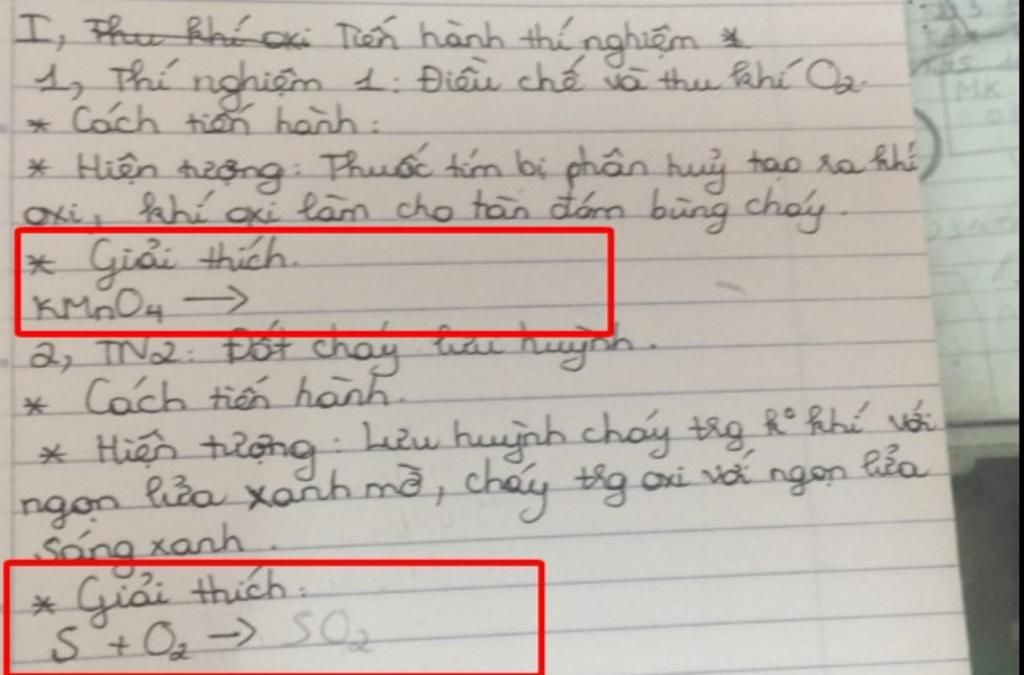 I, Thu khí oxi Tiến hành thí nghiệm *
1, Thí nghiệm 1: Điều chế và thu khí O2.
* Cách tiến hành:
* Hiện tượng: Thuốc tím bị phân huỷ tạo ra khí
oxi, khí oxi làm cho tàn đóm bùng cháy.
* Giải thích.
KMnO4 →
2, TN2: Đốt cháy lưu huỳnh.
* Cách tiến hành.
* Hiện tượng: Lưu huỳnh cháy trg k° khí với
ngọn lửa xanh mờ, cháy trg oxi với ngọn lửa
sáng xanh.
* Giải thích:
S + O2 → SO2
MK